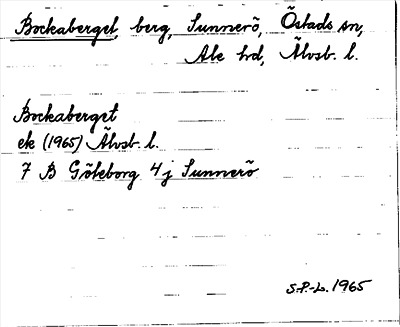 Bockaberget, berg, Sunnerö, Östads sn,
Ale hd, Älvsb. l.
Bockaberget
ek (1965) Älvsb. l.
7 B Göteborg 4j Sunnerö
S.P.-L. 1965